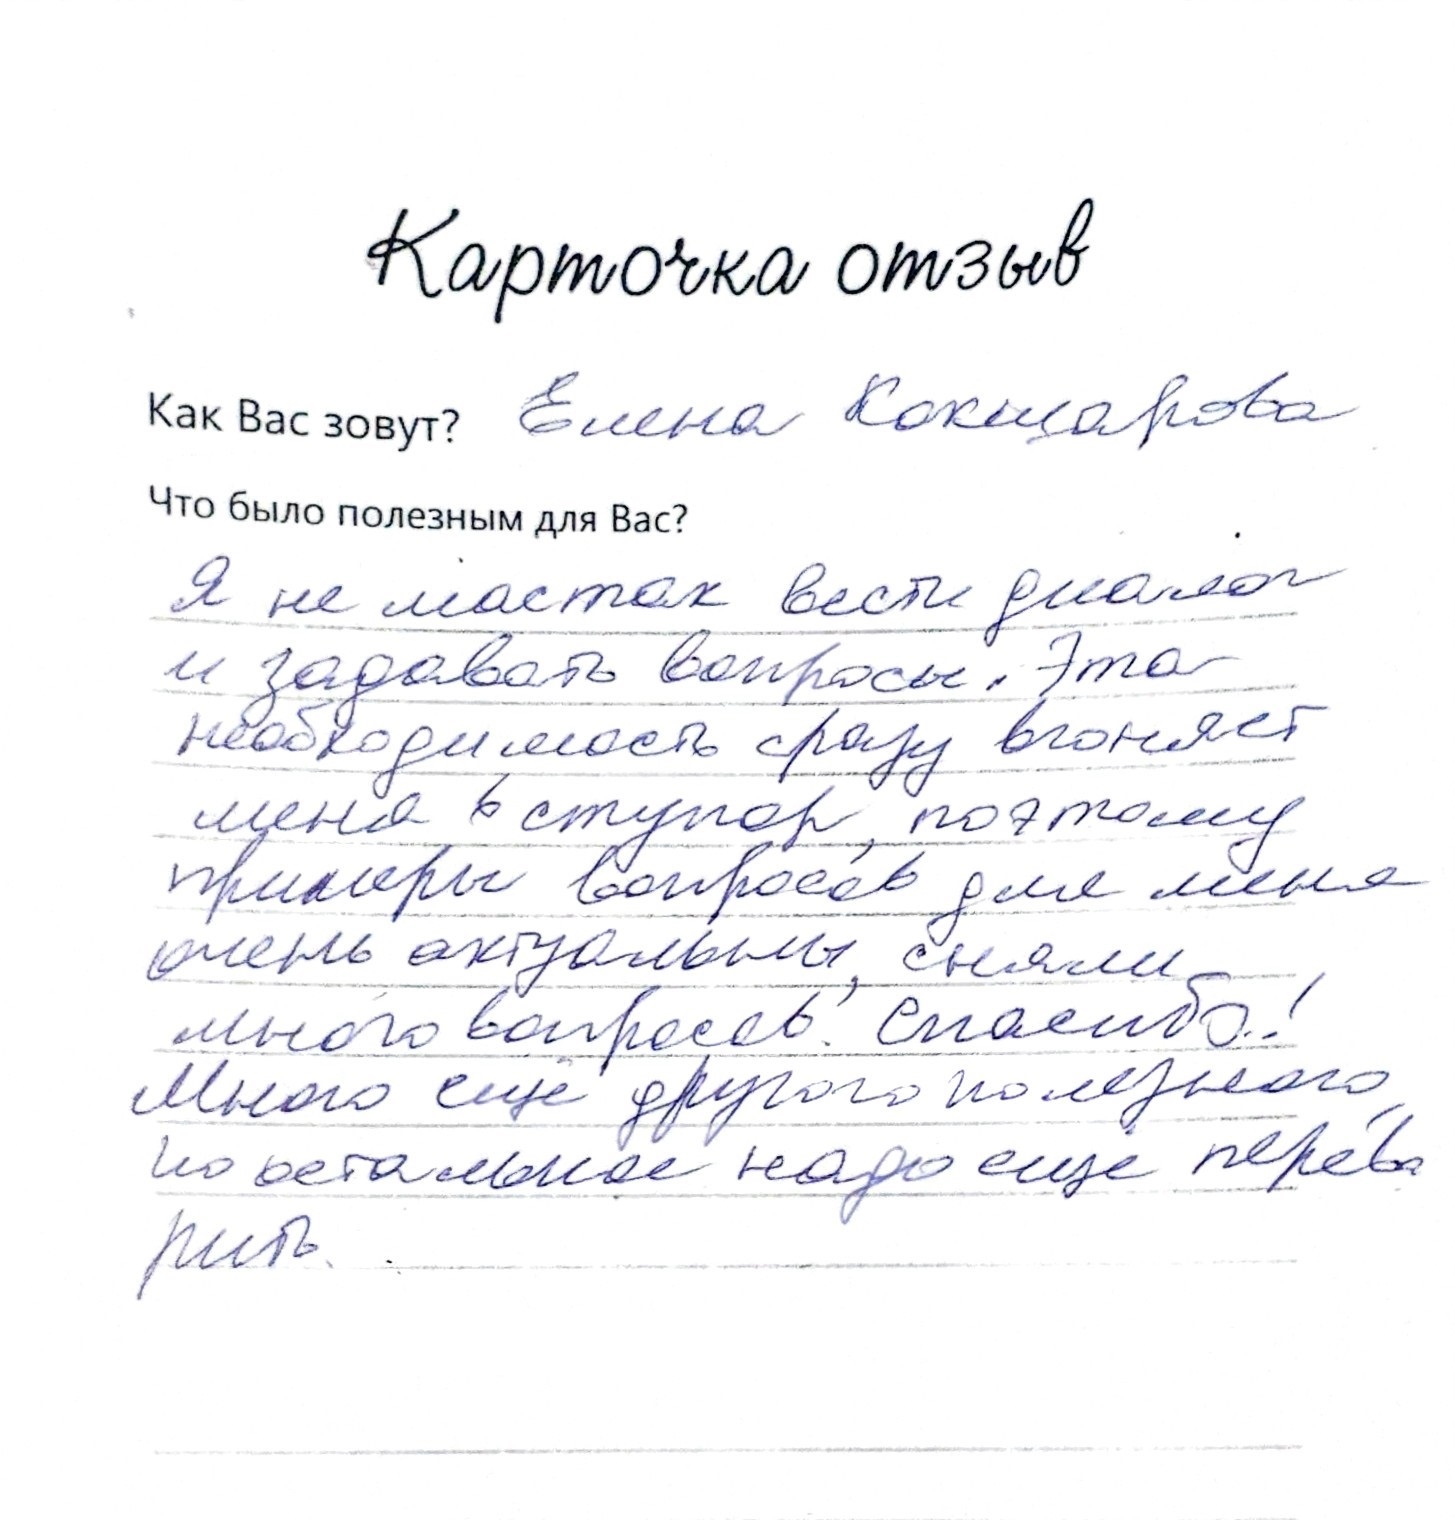 Карточка отзыв
Как Вас зовут? Елена Кокшарова
Что было полезным для Вас?
Я не мастак вести диалог
и задавать вопросы. Эта
необходимость сразу вгоняет
меня в ступор, поэтому
примеры вопросов для меня
очень актуальны, сняли
много вопросов. Спасибо!
Много ещё другого полезного,
но остальное надо ещё перева
рить.